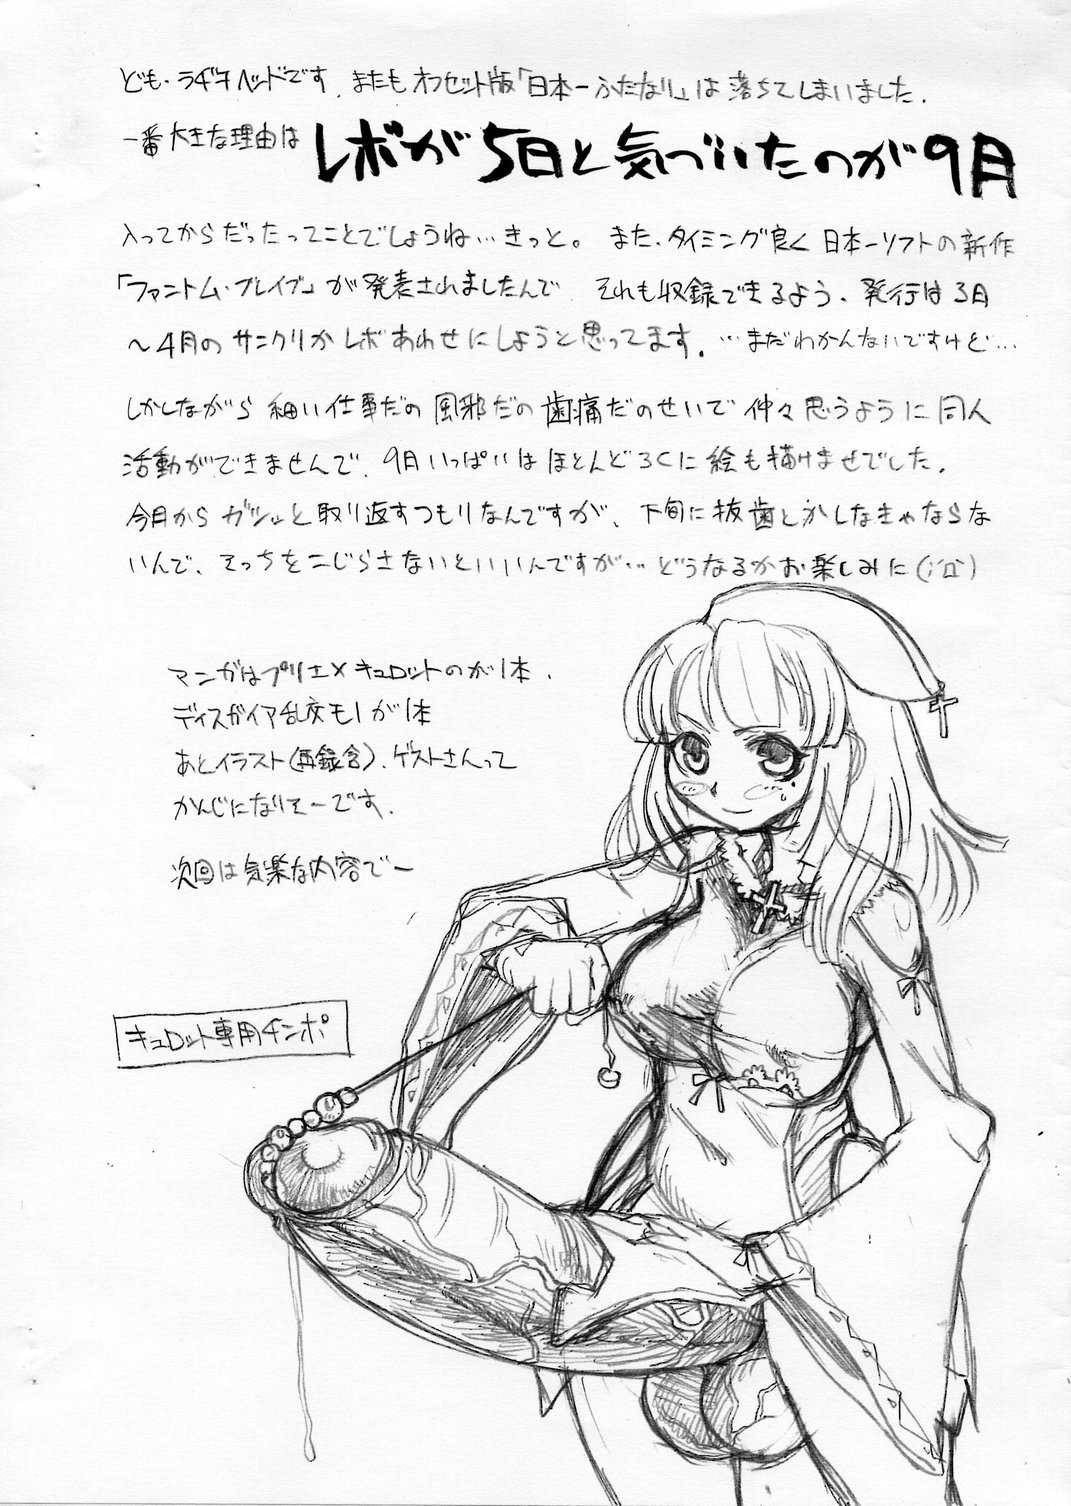 ども・ラヂヲヘッドです。またもオフセット版「日本一ふたなり」は落ちてしまいました。
一番大きな理由は レボが5日と気づいたのが9月
入ってからだったってことでしょうね…きっと。また、タイミング良く日本一ソフトの新作
「ファントム・ブレイブ」が発表されましたんで それも収録できるよう、発行は3月
～4月のサンクリかレボあわせにしようと思ってます。…まだわかんないですけど…
しかしながら 細い仕事だの風邪だの歯痛だのせいで仲々思うように同人
活動ができませんで、9月いっぱいはほとんどろくに絵も描けませでした。
今月からガシッと取り返すつもりなんですが、下旬に抜歯とかしなきゃならな
いんで、そっちをこじらさないといいんですが…どうなるかお楽しみに
マンガはプリエ×キュロットのが1本、
ディスガイア乱交モノが1本
あとイラスト(再録含)、ゲストさんって
かんじになりそーです。
次回は気楽な内容でー
キュロット専用チンポ